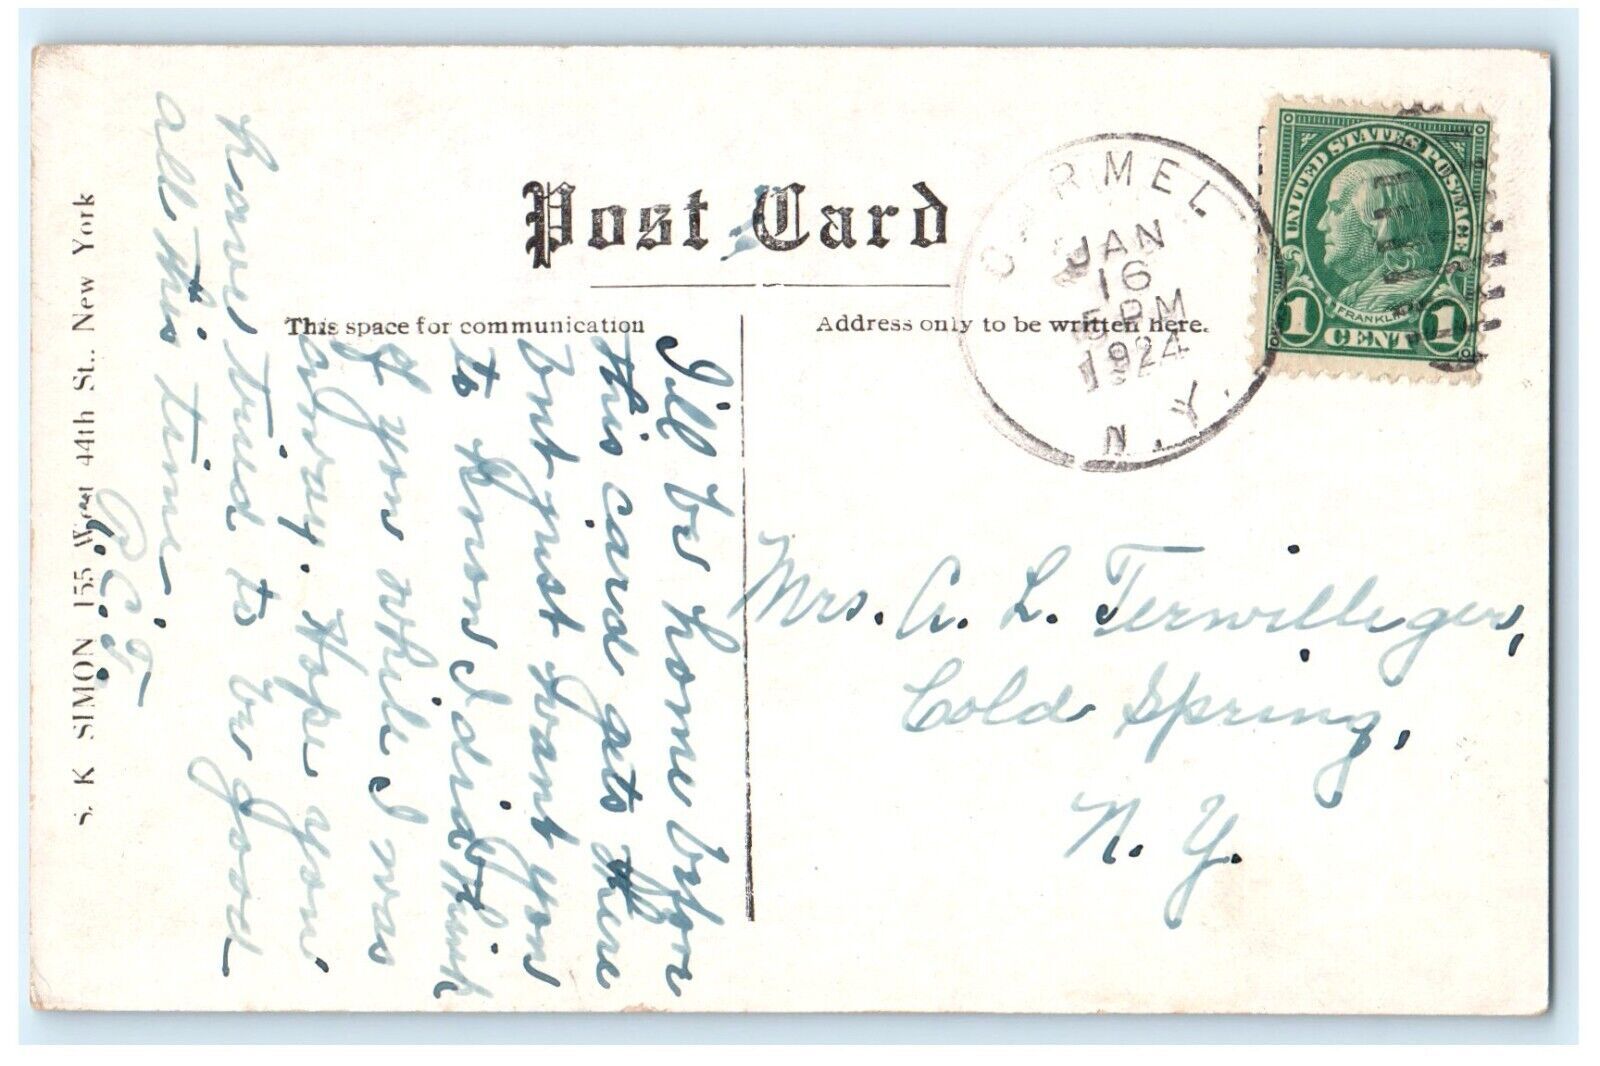 Post Card
This space for communication
Address only to be written here.
CARMEL
JAN
16
5 PM
1924
N.Y.
UNITED STATES POSTAGE
FRANKLIN
1 CENT 1
I'll be home before
this card gets there
but just want you
to know I did think
of you while I was
away. Hope you
have tried to be good
all this time
A. L. T.
Mrs. A. L. Terwilliger,
Cold Spring,
N. Y.
S. K SIMON 155 West 44th St., New York